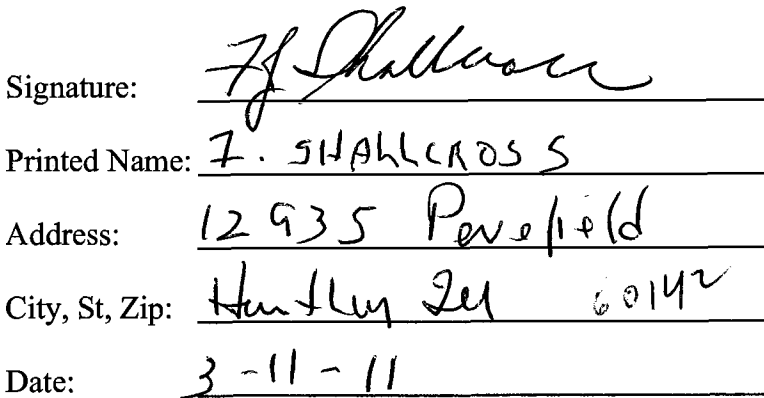 Signature: FJ Shallcross
Printed Name: F. SHALLCROSS
Address: 12935 Pennefield
City, St, Zip: Huntley Ill 60142
Date: 3-11-11